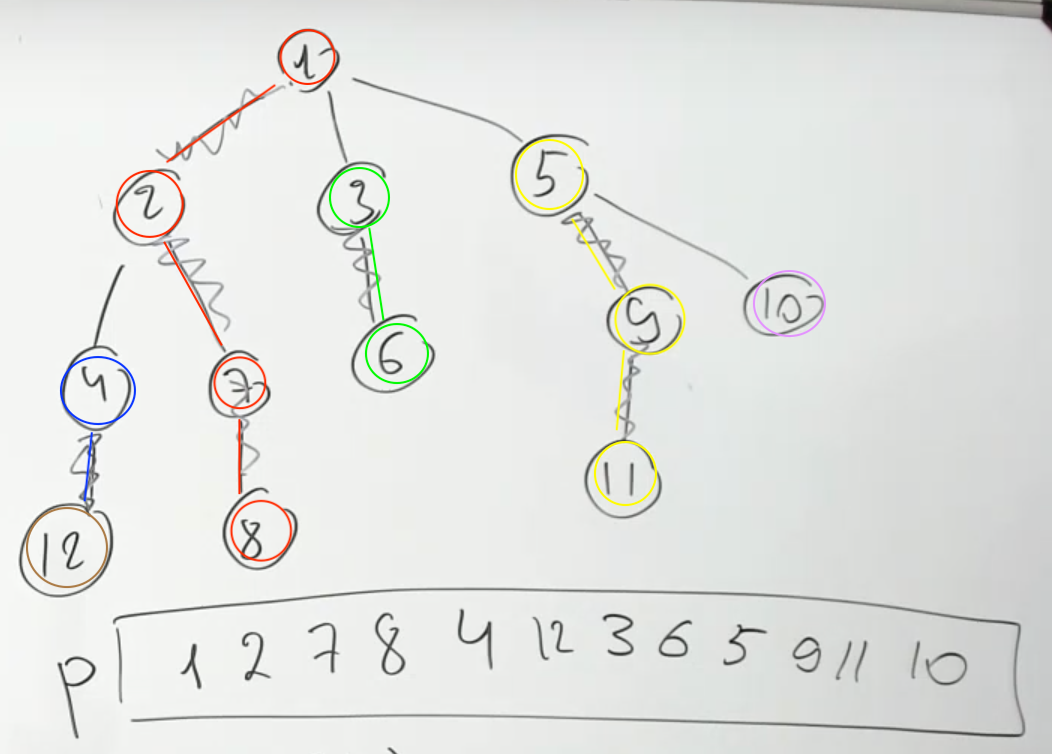 1
2 3 5
4 7 6 9 10
12 8 11
p 1 2 7 8 4 12 3 6 5 9 11 10